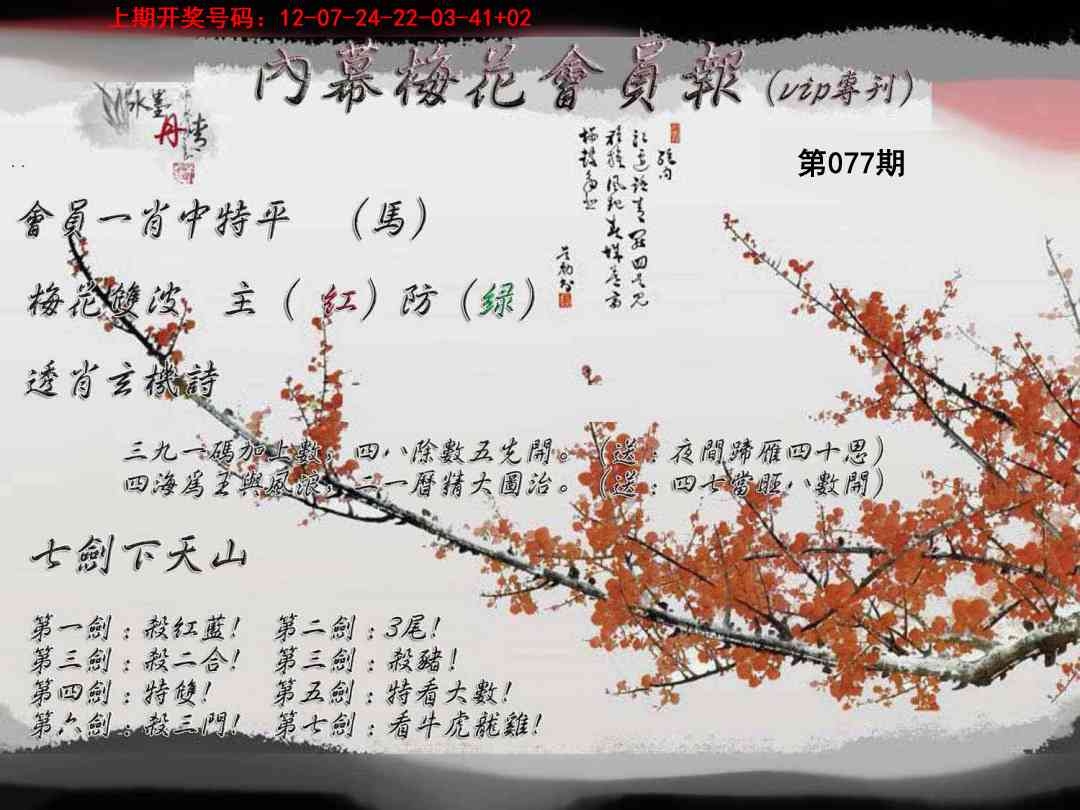 上期开奖号码：12-07-24-22-03-41+02
內幕梅花會員報（vip專刊）
水墨
丹青
第077期
..
會員一肖中特平　（馬）
梅花雙波　主（紅）防（緑）
透肖玄機詩
三九一碼加上數，四八除數五先開。（送：夜間蹄雁四十思）
四海爲王與風浪，二一曆精大圖治。（送：四七當旺八數開）
七劍下天山
第一劍：殺紅藍！　第二劍：3尾！
第三劍：殺二合！　第三劍：殺豬！
第四劍：特雙！　第五劍：特看大數！
第六劍：殺三門！　第七劍：看牛虎龍雞！